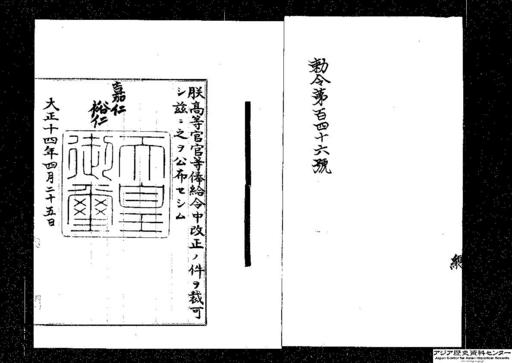 勅令第百四十六號
朕高等官官等俸給令中改正ノ件ヲ裁可
シ茲ニ之ヲ公布セシム
嘉仁
裕仁
天皇
御璽
大正十四年四月二十五日
アジア歴史資料センター
Japan Center for Asian Historical Records